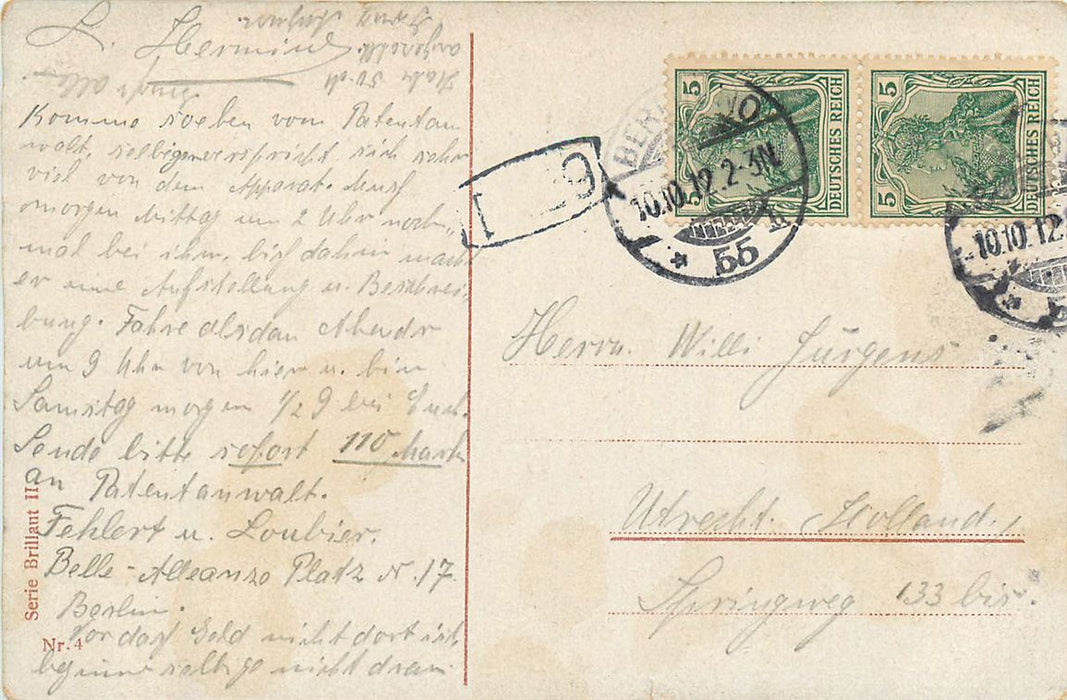 L. Hermine.
Komme soeben vom Patentan
walt, selbiger verspricht sich sehr
viel von dem Apparat. Muss
morgen Mittag um 2 Uhr noch
mal bei ihm, bis dahin macht
er eine Aufstellung u. Beschrei-
bung. Fahre alsdan Abends
um 9 Uhr von hier u. bin
Samstag morgen 1/2 9 bei Euch.
Sende bitte sofort 110 Mark
an Patentanwalt.
Fehlert u. Loubier.
Belle-Alleanze Platz N. 17
Berlin.
Vor das Geld nicht dort ist,
beginne selbige nicht dran.
Serie Brillant II
Nr. 4
5 DEUTSCHES REICH
5 DEUTSCHES REICH
10.10.12.2-3N.
* 55
10.10.12
Herrn. Willi Jürgens
Utrecht. Holland.
Springweg 133 bis.